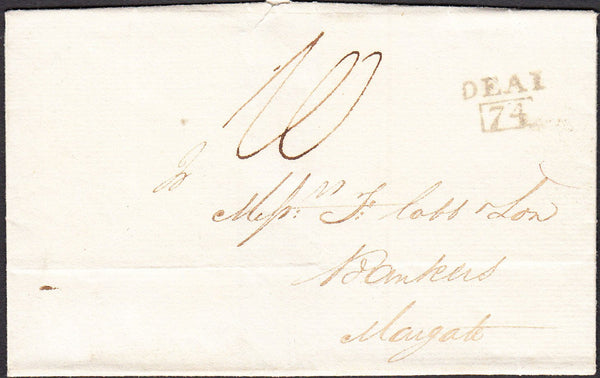 10
DEAL
74
Messrs. F: Cobb & Son
Bankers
Margate